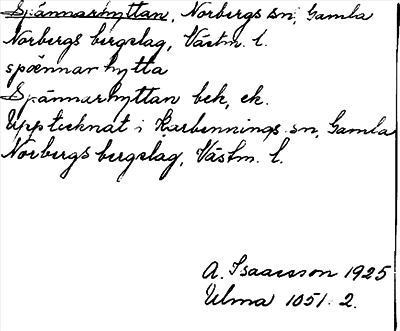 Spännarhyttan, Norbergs sn, Gamla
Norbergs bergslag, Västm. l.
spännar hytta
Spännarhyttan bek, ek.
Upptecknat i Karbennings sn, Gamla
Norbergs bergslag, Västm. l.
A. Isaacsson 1925
Ulma 1051: 2.